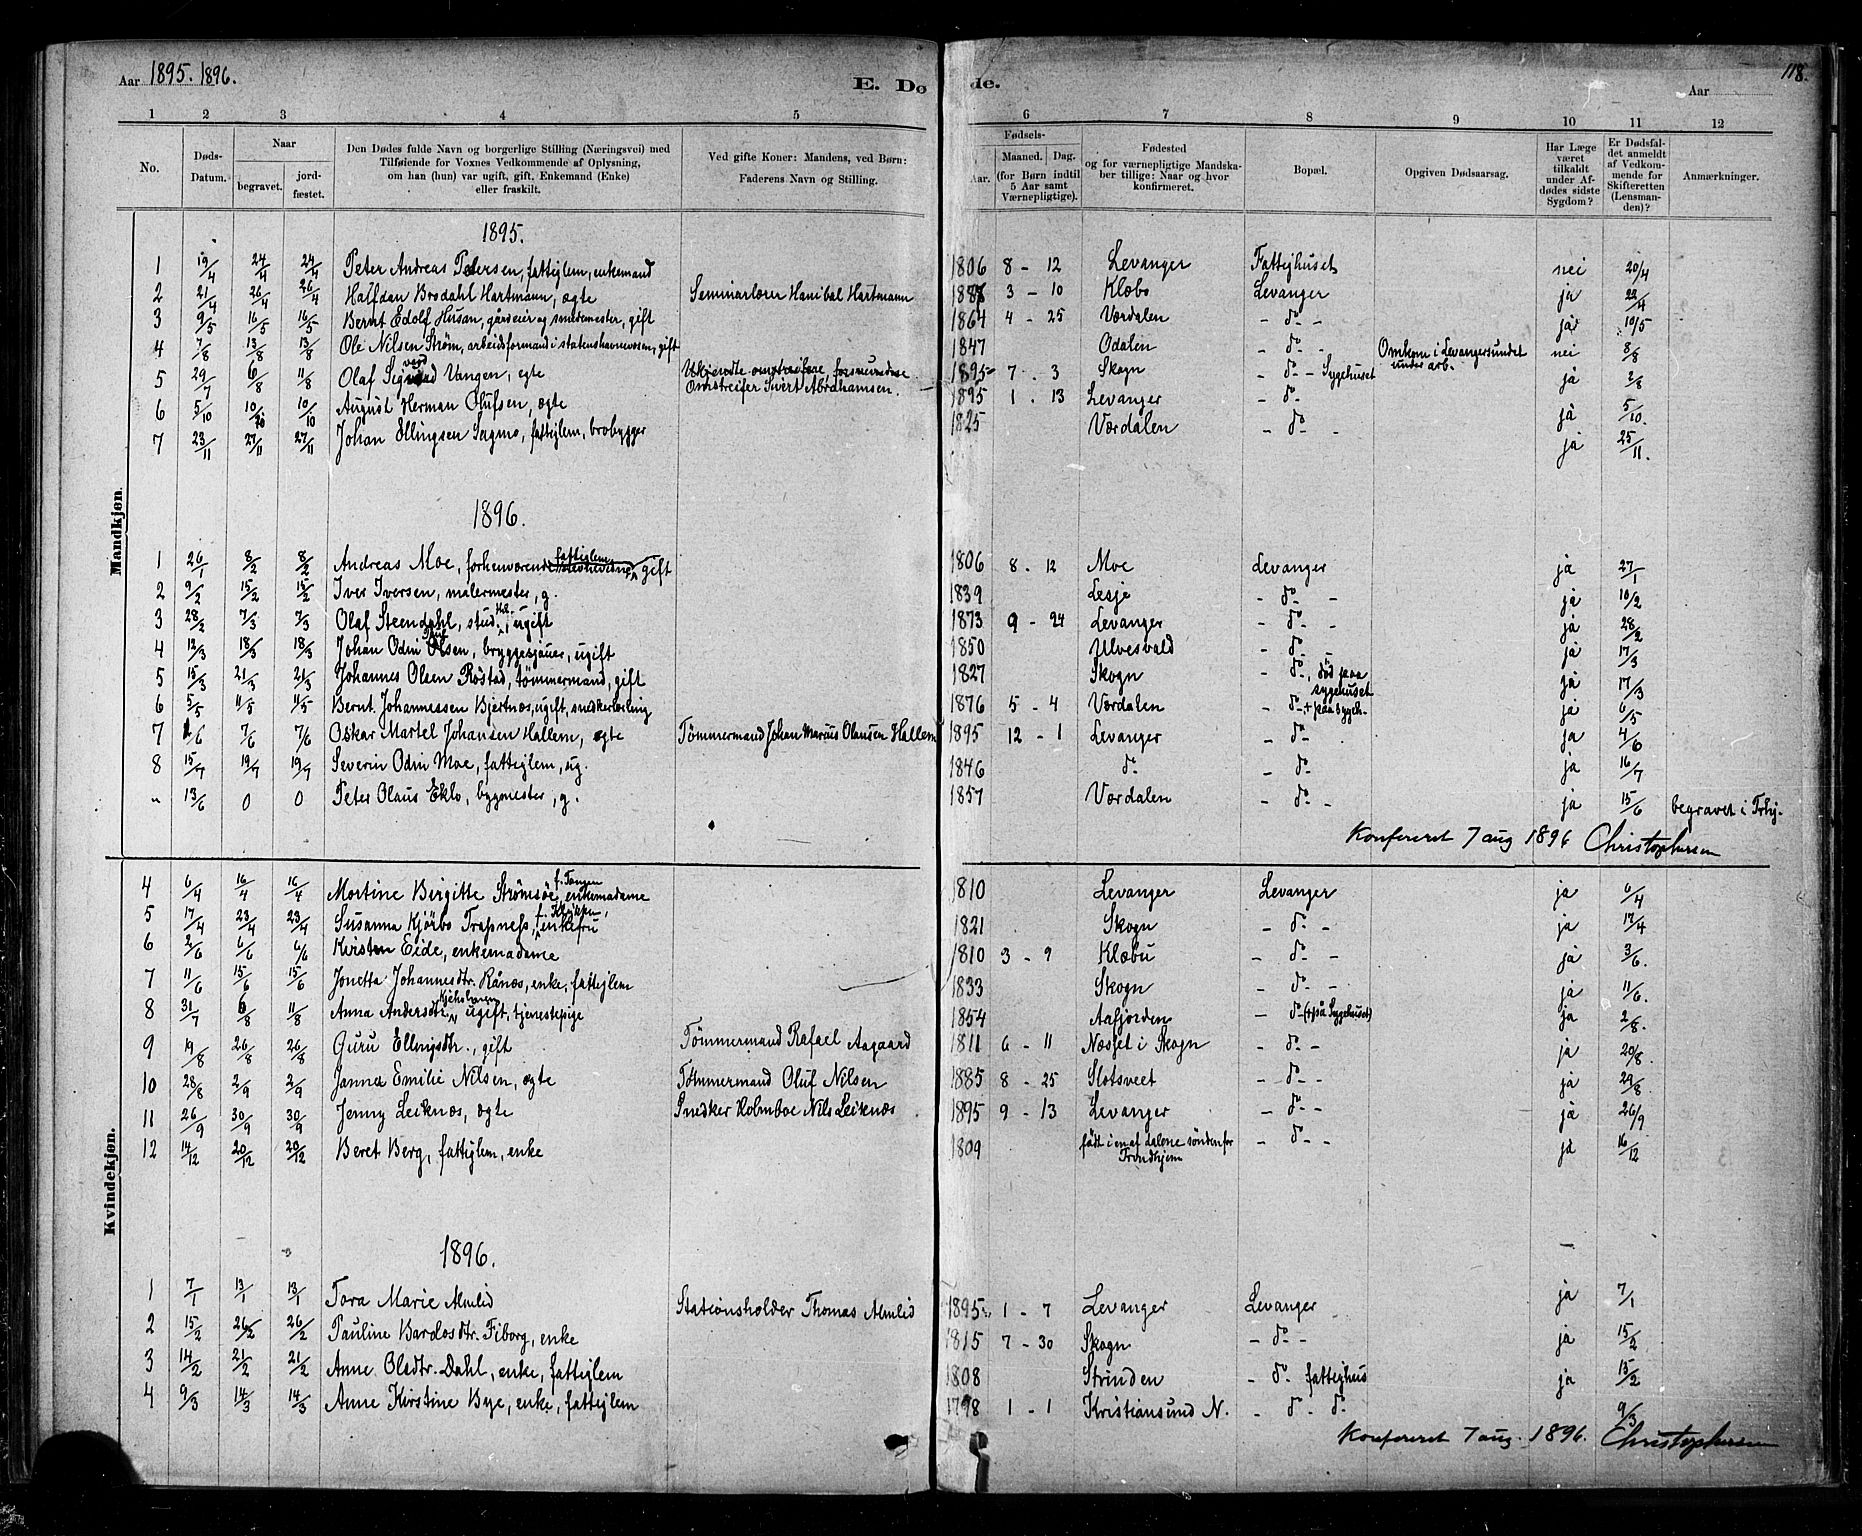 Aar 1895. 1896.
E. Dø
de.
Aar
118.
1 2 3 4 5 6 7 8 9 10 11 12
No.
Døds-Datum.
Naar
begravet.
jord-fæstet.
Den Dødes fulde Navn og borgerlige Stilling (Næringsvei) med
Tilføiende for Voxnes Vedkommende af Oplysning,
om han (hun) var ugift, gift, Enkemand (Enke)
eller fraskilt.
Ved gifte Koner: Mandens, ved Børn:
Faderens Navn og Stilling.
Fødsels-
Aar.
Maaned. Dag.
(for Børn indtil
5 Aar samt
Værnepligtige).
Fødested
og for værnepligtige Mandska-
ber tillige: Naar og hvor
konfirmeret.
Bopæl.
Opgiven Dødsaarsag.
Har Læge
været
tilkaldt
under Af-
dødes sidste
Sygdom?
Er Dødsfal-
det anmeldt
af Vedkom-
mende for
Skifteretten
(Lensman-
den)?
Anmærkninger.
Mandkjøn.
1895.
1 19/4 24/4 24/4 Peter Andreas Petersen, fattiglem, enkemand 1806 8 - 12 Levanger Fattighuset nei 20/4
2 21/4 26/4 26/4 Halfdan Brodahl Hartmann, ægte Seminarlærer Hanibal Hartmann 3 - 10 Klæbo Levanger ja 22/4
3 9/5 16/5 16/5 Bernt Edolf Husan, gårdeier og smedemester, gift 1864 4 - 25 Værdalen - do - ja 10/5
4 7/8 13/8 13/8 Ole Nilsen Strøm, arbeidsformand i statenshavnevæsen, gift 1847 Odalen - do - Omkom i Levangersundet under arb. nei 8/8
5 29/7 6/8 11/8 Olaf Vangen, ægte Omstreifer Sivert Abrahamsen. 1895 7 . 3 Skogn - do - Sygehuset ja 2/8
6 5/10 10/10 10/10 August Herman Olufsen, ægte 1895 1 . 13 Levanger - do - ja 5/10.
7 23/11 27/11 27/11 Johan Ellingsen Sagmo, fattiglem, brobygger 1825 Værdalen - do - ja 25/11.
1896.
1 26/1 8/2 8/2 Andreas Moe, fattiglem, gift 1806 8 . 12 Moe Levanger ja 27/1
2 9/2 15/2 15/2 Iver Iversen, malermester, g. 1839 Lesje - do - ja 10/2
3 28/2 7/3 7/3 Olaf Steendahl, stud. ugift 1873 9 - 24 Levanger - do - ja 28/2
4 12/3 18/3 18/3 Johan Odin Olsen, bryggesjauer, ugift 1850 Ulvesvald - do - ja 17/3
5 15/3 21/3 21/3 Johannes Olsen Røstad, tømmermand, gift 1827 Skogn - do, død paa sygehuset ja 17/3
6 5/5 11/5 11/5 Bernt Johannessen Bjertnæs, ugift, snedkerlærling 1876 5 - 4 Værdalen - do + paa Sygeh. ja 6/5
7 /6 7/6 7/6 Oskar Martel Johansen Hallem, ægte Tømmermand Johan Marius Olausen Hallem 1895 12 - 1 Levanger - do - ja 4/6
8 15/7 19/7 19/7 Severin Odin Moe, fattiglem, ug. 1846 do - do - ja 16/7
" 13/6 0 0 Peter Olaus Eklo, bygmester, g. 1857 Værdalen - do - ja 15/6 begravet i Trhj.
Konfereret 7 aug 1896 Christophersen
Kvindekjøn.
4 6/4 16/4 16/4 Mortine Birgitte Strømsøe, f. Tangen enkemadame 1810 Levanger Levanger ja 6/4
5 17/4 23/4 23/4 Susanna Kjørbo Trapness, enkefru 1821 Skogn - do - ja 17/4
6 2/6 6/6 6/6 Kirsten Eide, enkemadame 1810 3 - 9 Klæbu - do - ja 3/6.
7 11/6 15/6 15/6 Jonetta Johannesdtr. Rånæs, enke, fattiglem 1833 Skogn - do - ja 11/6.
8 31/7 6/8 11/8 Anna Andersdtr. ugift, tjenestepige 1854 Aafjorden - do (+ på Sygehuset) ja 2/8.
9 19/8 26/8 26/8 Guru Ellingsdtr., gift Tømmermand Rafael Aagaard 1811 6 - 11 Næsset i Skogn - do - ja 20/8.
10 28/8 2/9 2/9 Janna Emilie Nilsen, ægte Tømmermand Oluf Nilsen 1885 8 - 25 Slotsveet - do - ja 29/8.
11 26/9 30/9 30/9 Jenny Leiknæs, ægte Snedker Holmboe Nils Leiknæs 1895 9 - 13 Levanger - do - ja 26/9
12 14/12 20/12 20/12 Beret Berg, fattiglem, enke 1809 født i en af dalene søndenfor Trondhjem - do - ja 16/12
1896.
1 7/1 13/1 13/1 Tora Marie Almlid Stationsholder Thomas Almlid 1895. 1 - 7 Levanger Levanger ja 7/1
2 15/2 26/2 26/2 Pauline Bardosdtr. Fiborg, enke 1815 7 - 30 Skogn - do - ja 15/2
3 14/2 21/2 21/2 Anne Oledtr. Dahl, enke, fattiglem 1808 Strinden - do fattighus ja 15/2
4 9/3 14/3 14/3 Anne Kirstine Bye, enke, fattiglem 1798 1 - 1 Kristiansund N. - do do 9/3
Konfereret 7 aug. 1896. Christophersen